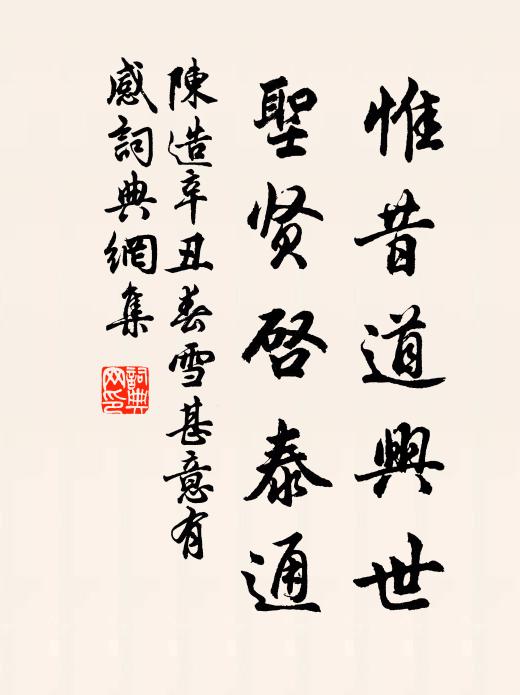 惟昔道興世
聖贤啓泰通
陳造辛丑春雪甚意有
感詞典網集
詞典
网印